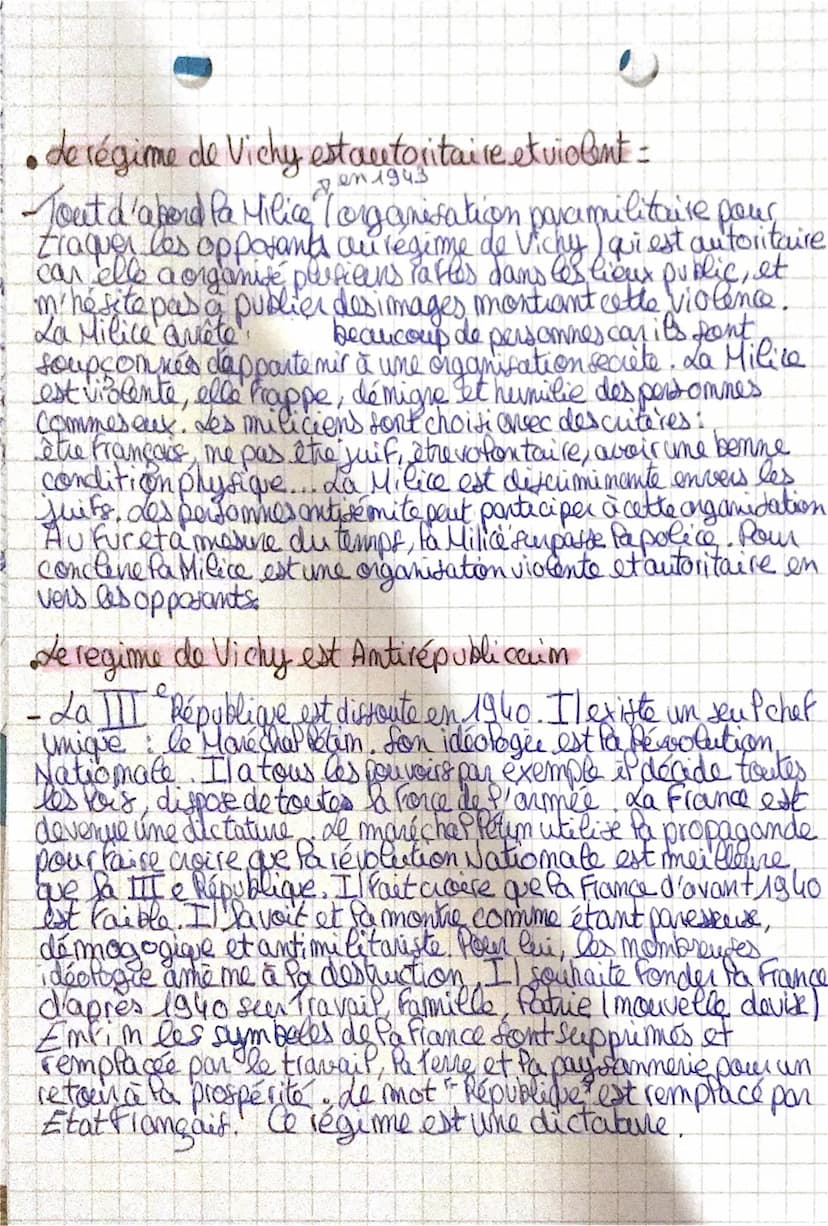 • Le régime de Vichy est autoritaire et violent :
en 1943
- Tout d'abord la Milice (organisation paramilitaire pour
traquer les opposants au régime de Vichy) qui est autoritaire
car elle a organisé plusieurs rafles dans les lieux public, et
n'hésite pas à publier des images montrant cette violence.
La Milice arrête beaucoup de personnes car ils sont
soupçonnés d'appartenir à une organisation secrète. La Milice
est violente, elle frappe, dénigre et humilie des personnes
commes eux. Les miliciens sont choisi avec des critères :
être français, ne pas être juif, être volontaire, avoir une bonne
condition physique... La Milice est discriminante envers les
juifs. Les personnes antisémite peut participer à cette organisation
Au fur et à mesure du temps, la Milice surpasse la police. Pour
conclure la Milice est une organisation violente et autoritaire en
vers les opposants.
• Le regime de Vichy est Antirépublicain
- La IIIe République est dissoute en 1940. Il existe un seul chef
unique : le Maréchal Pétain. Son idéologie est la Révolution
Nationale. Il a tous les pouvoirs par exemple il décide toutes
les lois, dispose de toutes la force de l'armée. La France est
devenue une dictature. Le maréchal Pétain utilise la propagande
pour faire croire que la révolution Nationale est meilleure
que la III e République. Il fait croire que la France d'avant 1940
est faible. Il la voit et la montre comme étant paresseuse,
démogogique et antimilitariste. Pour lui, les nombreuses
idéologie amène à la destruction. Il souhaite fonder la France
d'après 1940 sur Travail, Famille, Patrie (nouvelle devise)
Enfin les symboles de la France sont supprimés et
remplacée par le travail, la terre et la paysannerie pour un
retour à la prospérité. Le mot "République" est remplacé par
État Français. Ce régime est une dictature.